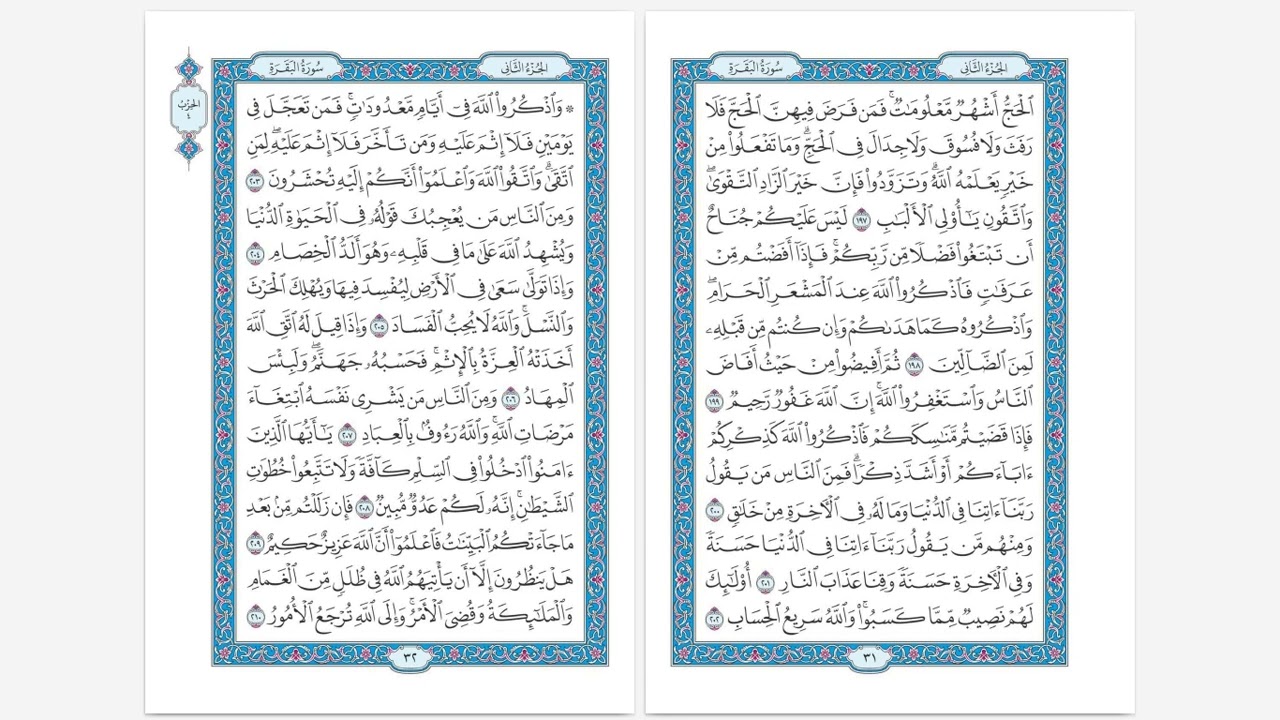 الجُزْءُ الثَّانِي
سُورَةُ البَقَرَةِ
ٱلْحَجُّ أَشْهُرٌ مَّعْلُومَٰتٌ ۚ فَمَن فَرَضَ فِيهِنَّ ٱلْحَجَّ فَلَا
رَفَثَ وَلَا فُسُوقَ وَلَا جِدَالَ فِى ٱلْحَجِّ ۗ وَمَا تَفْعَلُوا۟ مِنْ
خَيْرٍ يَعْلَمْهُ ٱللَّهُ ۗ وَتَزَوَّدُوا۟ فَإِنَّ خَيْرَ ٱلزَّادِ ٱلتَّقْوَىٰ ۖ
وَٱتَّقُونِ يَٰٓأُو۟لِى ٱلْأَلْبَٰبِ ١٩٧ لَيْسَ عَلَيْكُمْ جُنَاحٌ
أَن تَبْتَغُوا۟ فَضْلًا مِّن رَّبِّكُمْ ۚ فَإِذَآ أَفَضْتُم مِّنْ
عَرَفَٰتٍ فَٱذْكُرُوا۟ ٱللَّهَ عِندَ ٱلْمَشْعَرِ ٱلْحَرَامِ ۖ
وَٱذْكُرُوهُ كَمَا هَدَىٰكُمْ وَإِن كُنتُم مِّن قَبْلِهِۦ
لَمِنَ ٱلضَّآلِّينَ ١٩٨ ثُمَّ أَفِيضُوا۟ مِنْ حَيْثُ أَفَاضَ
ٱلنَّاسُ وَٱسْتَغْفِرُوا۟ ٱللَّهَ ۚ إِنَّ ٱللَّهَ غَفُورٌ رَّحِيمٌ ١٩٩
فَإِذَا قَضَيْتُم مَّنَٰسِكَكُمْ فَٱذْكُرُوا۟ ٱللَّهَ كَذِكْرِكُمْ
ءَابَآءَكُمْ أَوْ أَشَدَّ ذِكْرًا ۗ فَمِنَ ٱلنَّاسِ مَن يَقُولُ
رَبَّنَآ ءَاتِنَا فِى ٱلدُّنْيَا وَمَا لَهُۥ فِى ٱلْءَاخِرَةِ مِنْ خَلَٰقٍ ٢٠٠
وَمِنْهُم مَّن يَقُولُ رَبَّنَآ ءَاتِنَا فِى ٱلدُّنْيَا حَسَنَةً
وَفِى ٱلْءَاخِرَةِ حَسَنَةً وَقِنَا عَذَابَ ٱلنَّارِ ٢٠١ أُو۟لَٰٓئِكَ
لَهُمْ نَصِيبٌ مِّمَّا كَسَبُوا۟ ۚ وَٱللَّهُ سَرِيعُ ٱلْحِسَابِ ٢٠٢
٣١
الجُزْءُ الثَّانِي
سُورَةُ البَقَرَةِ
الحِزْبُ
٤
۞ وَٱذْكُرُوا۟ ٱللَّهَ فِىٓ أَيَّامٍ مَّعْدُودَٰتٍ ۚ فَمَن تَعَجَّلَ فِى
يَوْمَيْنِ فَلَآ إِثْمَ عَلَيْهِ وَمَن تَأَخَّرَ فَلَآ إِثْمَ عَلَيْهِ ۚ لِمَنِ
ٱتَّقَىٰ ۗ وَٱتَّقُوا۟ ٱللَّهَ وَٱعْلَمُوٓا۟ أَنَّكُمْ إِلَيْهِ تُحْشَرُونَ ٢٠٣
وَمِنَ ٱلنَّاسِ مَن يُعْجِبُكَ قَوْلُهُۥ فِى ٱلْحَيَوٰةِ ٱلدُّنْيَا
وَيُشْهِدُ ٱللَّهَ عَلَىٰ مَا فِى قَلْبِهِۦ وَهُوَ أَلَدُّ ٱلْخِصَامِ ٢٠٤
وَإِذَا تَوَلَّىٰ سَعَىٰ فِى ٱلْأَرْضِ لِيُفْسِدَ فِيهَا وَيُهْلِكَ ٱلْحَرْثَ
وَٱلنَّسْلَ ۗ وَٱللَّهُ لَا يُحِبُّ ٱلْفَسَادَ ٢٠٥ وَإِذَا قِيلَ لَهُ ٱتَّقِ ٱللَّهَ
أَخَذَتْهُ ٱلْعِزَّةُ بِٱلْإِثْمِ ۚ فَحَسْبُهُۥ جَهَنَّمُ ۖ وَلَبِئْسَ
ٱلْمِهَادُ ٢٠٦ وَمِنَ ٱلنَّاسِ مَن يَشْرِى نَفْسَهُ ٱبْتِغَآءَ
مَرْضَاتِ ٱللَّهِ ۗ وَٱللَّهُ رَءُوفٌۢ بِٱلْعِبَادِ ٢٠٧ يَٰٓأَيُّهَا ٱلَّذِينَ
ءَامَنُوا۟ ٱدْخُلُوا۟ فِى ٱلسِّلْمِ كَآفَّةً وَلَا تَتَّبِعُوا۟ خُطُوَٰتِ
ٱلشَّيْطَٰنِ ۚ إِنَّهُۥ لَكُمْ عَدُوٌّ مُّبِينٌ ٢٠٨ فَإِن زَلَلْتُم مِّنۢ بَعْدِ
مَا جَآءَتْكُمُ ٱلْبَيِّنَٰتُ فَٱعْلَمُوٓا۟ أَنَّ ٱللَّهَ عَزِيزٌ حَكِيمٌ ٢٠٩
هَلْ يَنظُرُونَ إِلَّآ أَن يَأْتِيَهُمُ ٱللَّهُ فِى ظُلَلٍ مِّنَ ٱلْغَمَامِ
وَٱلْمَلَٰٓئِكَةُ وَقُضِىَ ٱلْأَمْرُ ۚ وَإِلَى ٱللَّهِ تُرْجَعُ ٱلْأُمُورُ ٢١٠
٣٢